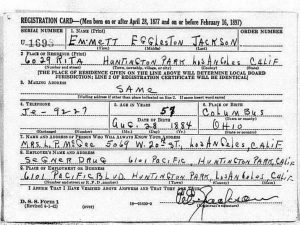 REGISTRATION CARD—(Men born on or after April 28, 1877 and on or before February 16, 1897)
SERIAL NUMBER 1. NAME (Print) ORDER NUMBER
U 1695 EMMETT EGGLESTON JACKSON
(First) (Middle) (Last)
2. PLACE OF RESIDENCE (Print)
6029 RITA HUNTINGTON PARK LOS ANGELES CALIF
(Number and street) (Town, township, village, or city) (County) (State)
[THE PLACE OF RESIDENCE GIVEN ON THE LINE ABOVE WILL DETERMINE LOCAL BOARD
JURISDICTION; LINE 2 OF REGISTRATION CERTIFICATE WILL BE IDENTICAL]
3. MAILING ADDRESS
SAME
[Mailing address if other than place indicated on line 2. If same insert word same]
4. TELEPHONE 5. AGE IN YEARS 6. PLACE OF BIRTH
Je-9227 57 COLUMBUS
DATE OF BIRTH (Town or county)
AUG. 28 1884 OHIO
(Exchange) (Number) (Mo.) (Day) (Yr.) (State or country)
7. NAME AND ADDRESS OF PERSON WHO WILL ALWAYS KNOW YOUR ADDRESS
MRS. L.P. MCGEE 5069 W. 20TH ST., LOS ANGELES, CALIF
8. EMPLOYER'S NAME AND ADDRESS
SEGNER DRUG 6101 PACIFIC HUNTINGTON PARK, CALIF
9. PLACE OF EMPLOYMENT OR BUSINESS
6101 PACIFIC BLVD. HUNTINGTON PARK, LOS ANGELES, CALIF.
(Number and street or R. F. D. number) (Town) (County) (State)
I AFFIRM THAT I HAVE VERIFIED ABOVE ANSWERS AND THAT THEY ARE TRUE.
D. S. S. Form 1
(Revised 4-1-42) (over)
Jackson